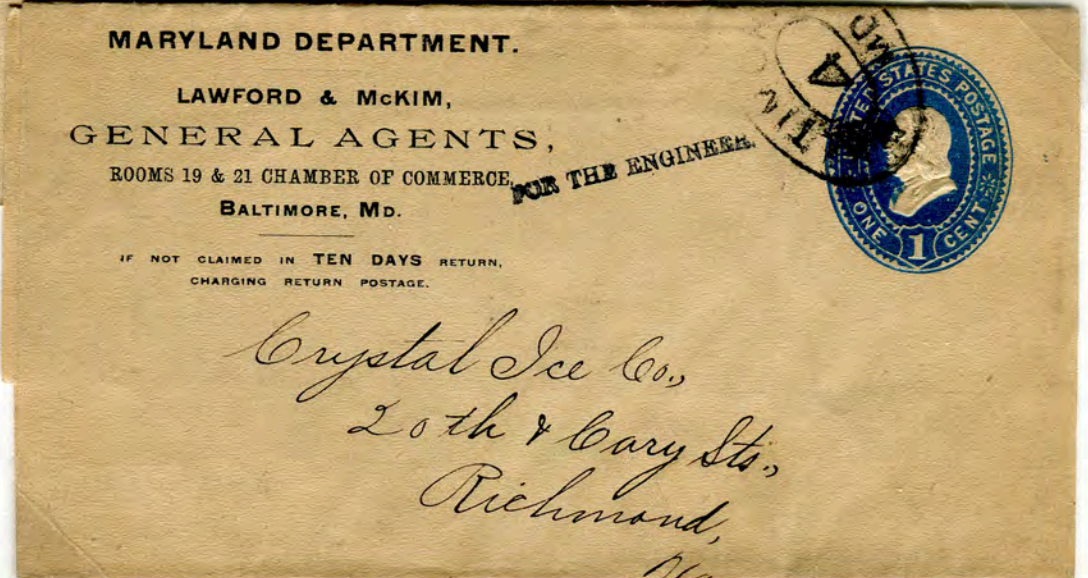 MARYLAND DEPARTMENT.
LAWFORD & McKIM,
GENERAL AGENTS,
ROOMS 19 & 21 CHAMBER OF COMMERCE,
BALTIMORE, MD.
IF NOT CLAIMED IN TEN DAYS RETURN,
CHARGING RETURN POSTAGE.
FOR THE ENGINEER.
MD
4
UNITED STATES POSTAGE
ONE 1 CENT
Crystal Ice Co.,
20th & Cary Sts.,
Richmond,